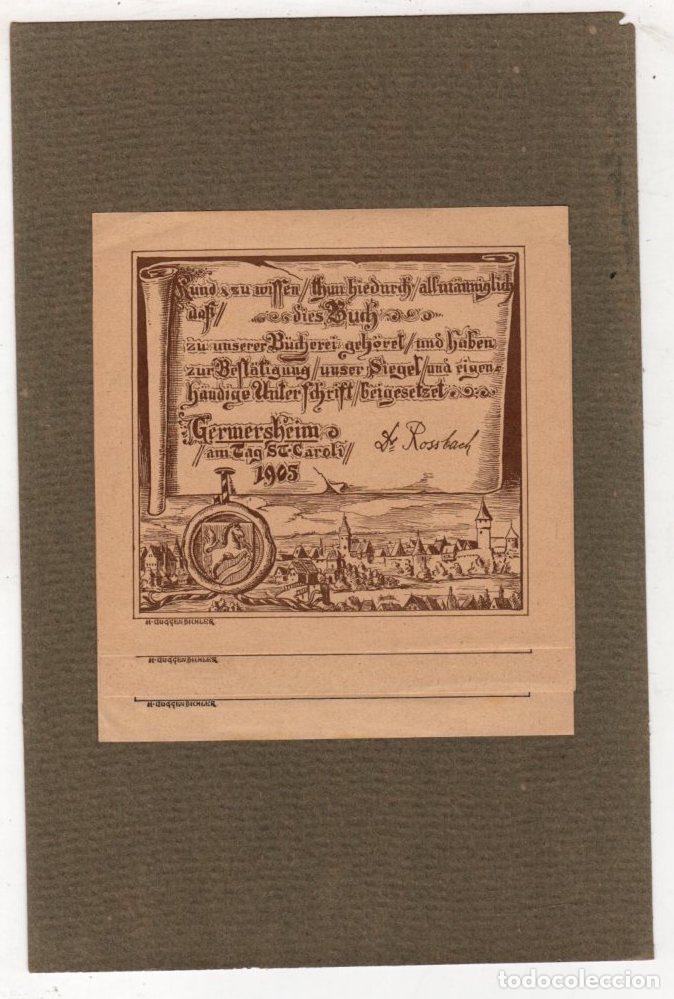 Kund & zu wissen / thun hiedurch / allmänniglich
daß /
dies Buch
zu unserer Bücherei gehöret / und haben
zur Bestätigung / unser Siegel / und eigen=
händige Unterschrift / beigesetzet
Germersheim
/ am Tag St. Caroli //
1905
Dr Rossbach
H. GUGGENBICHLER
H. GUGGENBICHLER
H. GUGGENBICHLER
todocoleccion
todocoleccion.net